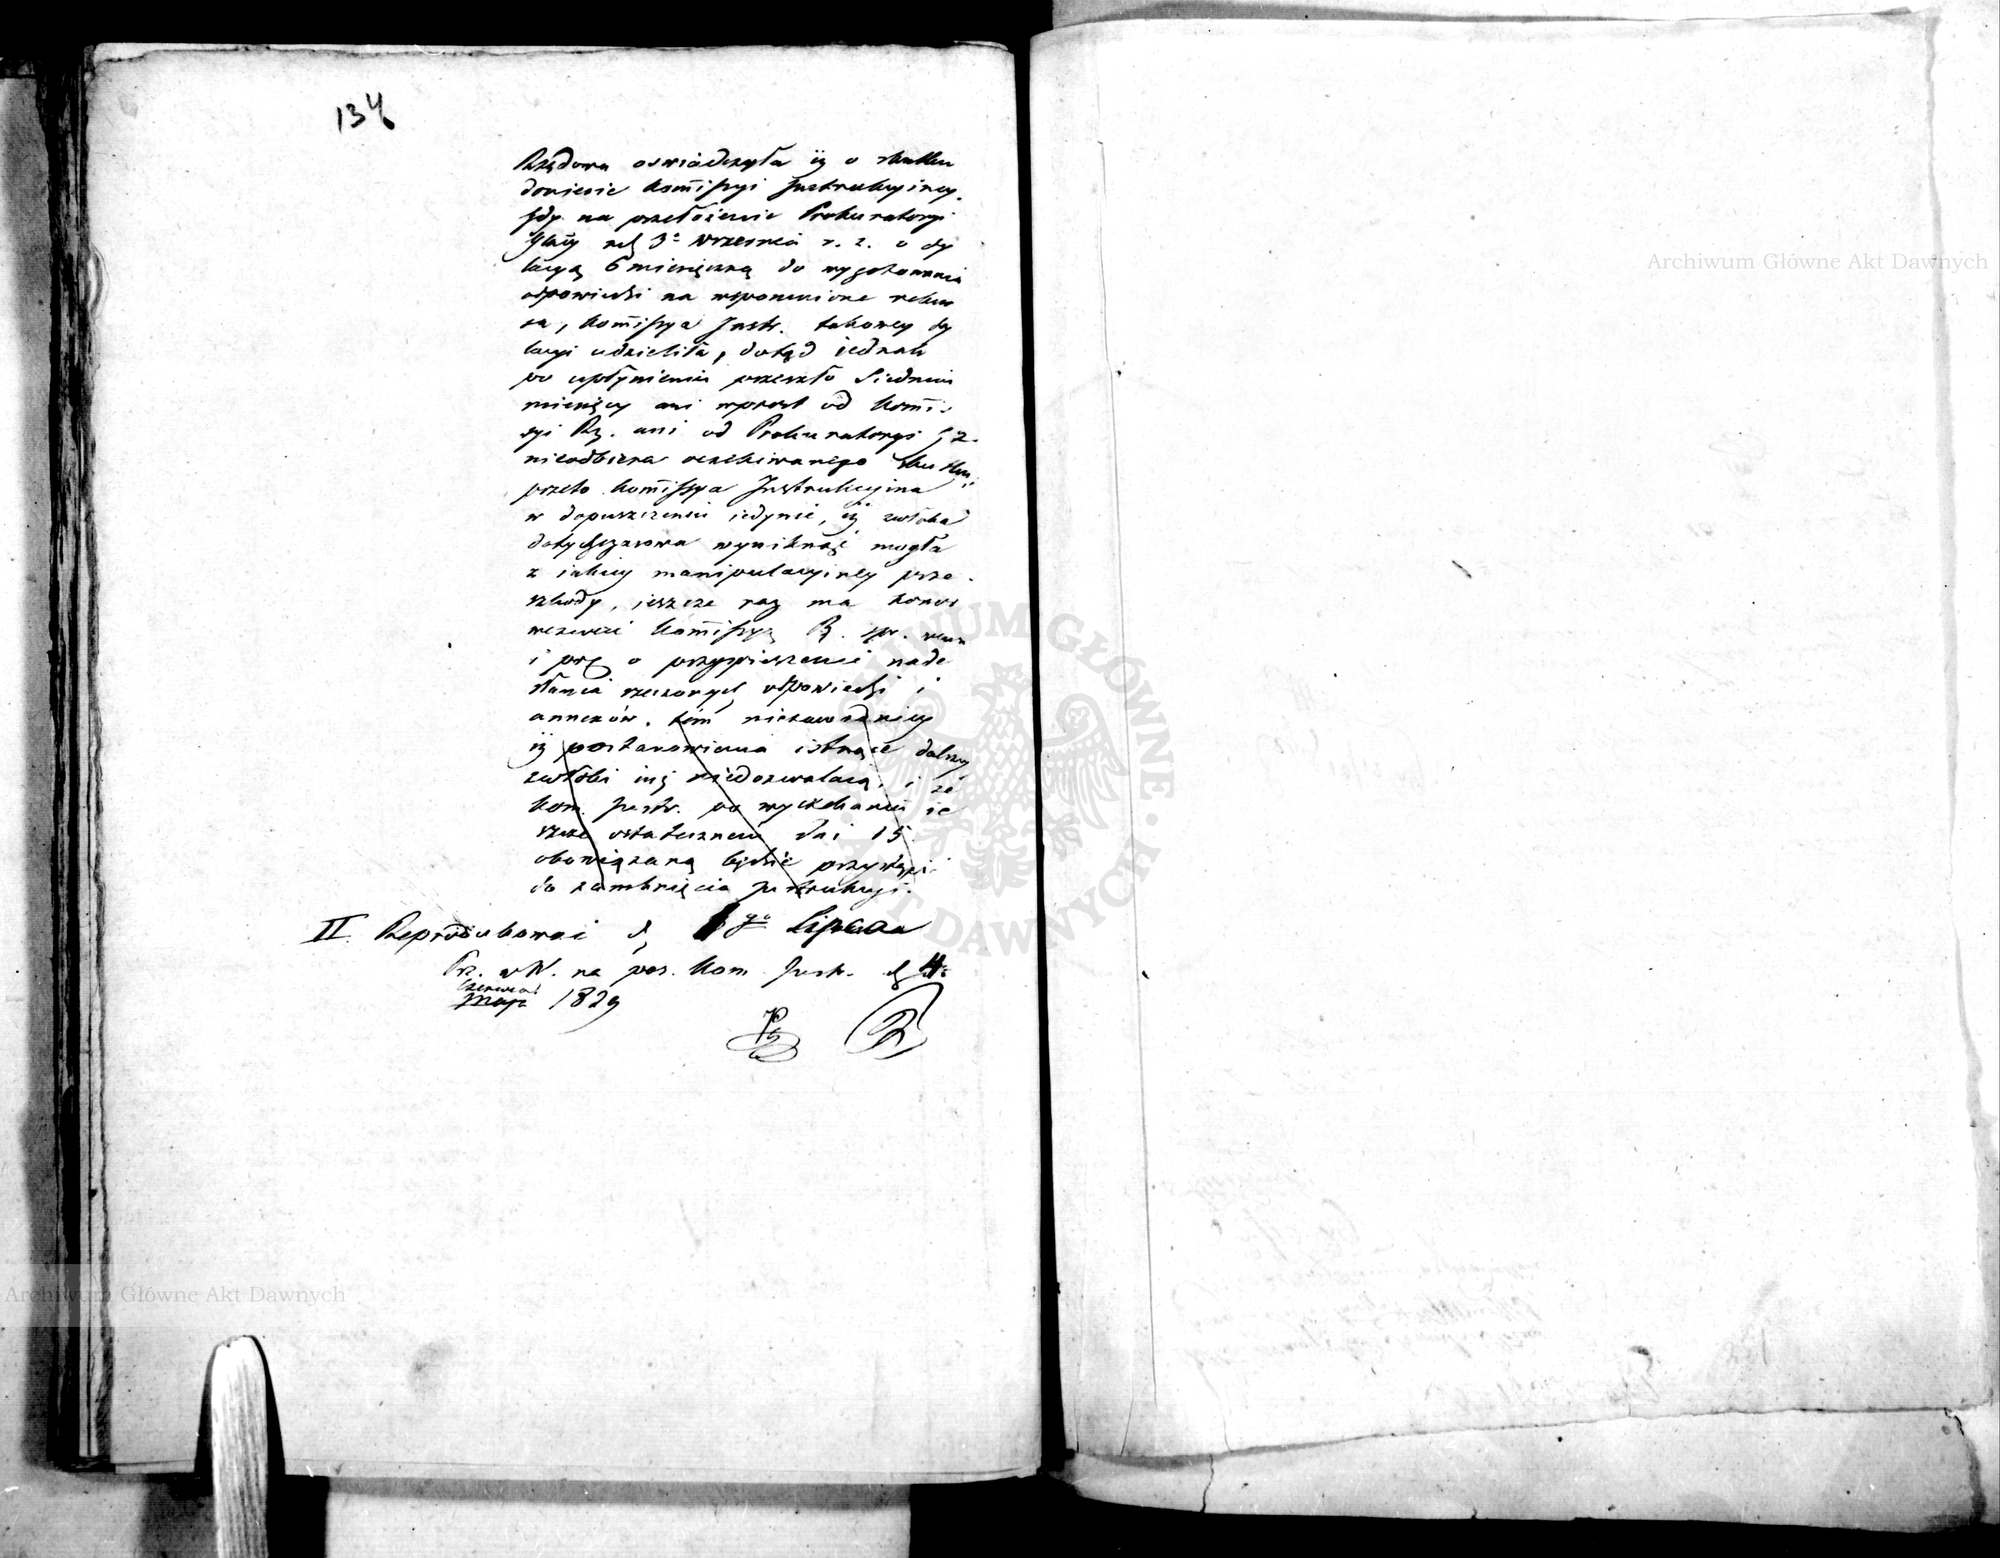 134
Rządowa oswiadczyła iż o skutku
doniesie Kommissyi Instrukcyiney.
Gdy na przełożenie Prokuratoryi
Gnły z d 3º Września r. z. o dy
lacyą 6 miesięczną do wygotowania
odpowiedzi na wspomnione rekur
sa, Kommissya Instr. takowey dy
lacyi udzieliła, dotąd iednak
po upłynieniu przeszło Siedmiu
miesięcy ani wprost od Kommi-
syi Rz. ani od Prokuratoryi G
nieodbiera oczekiwanego skutku;
przeto Kommissya Instrukcyina
w dopuszczeniu iedynie, iż zwłoka
dotychczasowa wyniknąć mogła
z iakiey manipulacyiney prze-
szkody, ieszcze raz ma honor
wezwać Kommissyą R. spr. wewn
i pol o przyspieszenie nade
słania rzeczonych odpowiedzi i
annexów, tem niezawodniey
iż postanowienia istnące dalszey
zwłoki iuż niedozwalaią, i że
Kom. Instr. po wyczekaniu ie
szcze ostatecznem dni 15
obowiązaną będzie przystąpić
do zamknięcia Instrukcyi.
II. Reprodukować d. 1go Lipca
Prz. w W. na pos. Kom. Instr. d 4º
Czerwca
Maja 1829
Archiwum Główne Akt Dawnych
Archiwum Główne Akt Dawnych
ARCHIWUM GŁÓWNE AKT DAWNYCH